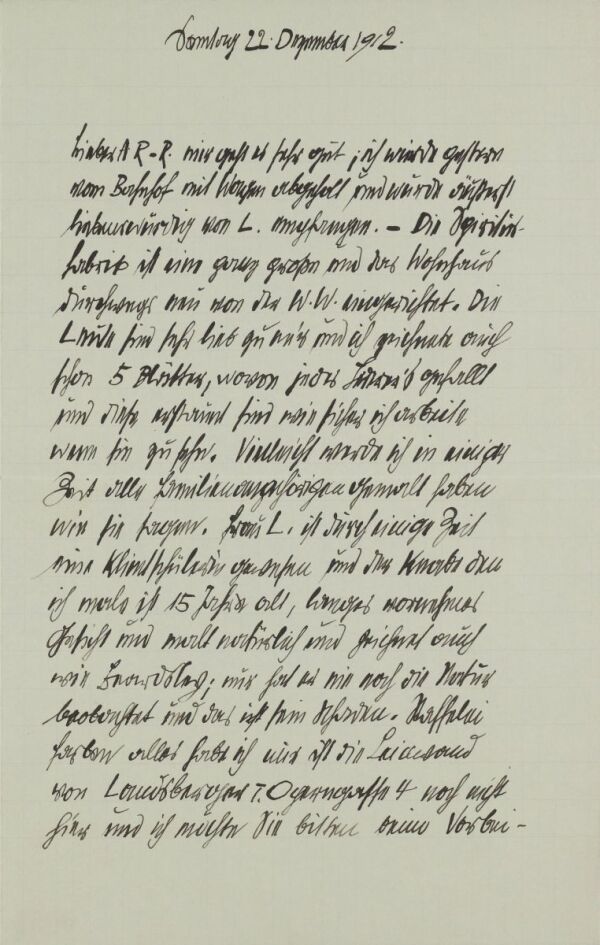 Samstag 22. Dezember 1912.
Lieber A R-R. mir geht es sehr gut, ich wurde gestern
vom Bahnhof mit Wagen abgeholt und wurde äußerst
liebenswürdig von L. empfangen. – Die Spiritus-
fabrik ist eine ganz große und das Wohnhaus
durchwegs neu von der W.W. eingerichtet. Die
Leute sind sehr lieb zu mir und ich zeichnete auch
schon 5 Blätter, wovon jedes gefällt
und diese erstaunt sind wie sicher ich arbeite
wenn sie zusehn. Vielleicht werde ich in einiger
Zeit alle Familienangehörigen gemalt haben
wie sie sagen. Frau L. ist durch einige Zeit
eine Klimtschülerin gewesen und der Knabe den
ich male ist 15 Jahre alt, langes vornehmes
Gesicht und malt natürlich und zeichnet auch
wie Beardsley; nur hat er nie noch die Natur
beobachtet und das ist sein Schaden. Staffelei
Farben alles habe ich nur ist die Leinwand
von Landsberger I. Operngasse 4 noch nicht
hier und ich möchte Sie bitten beim Vorbei-